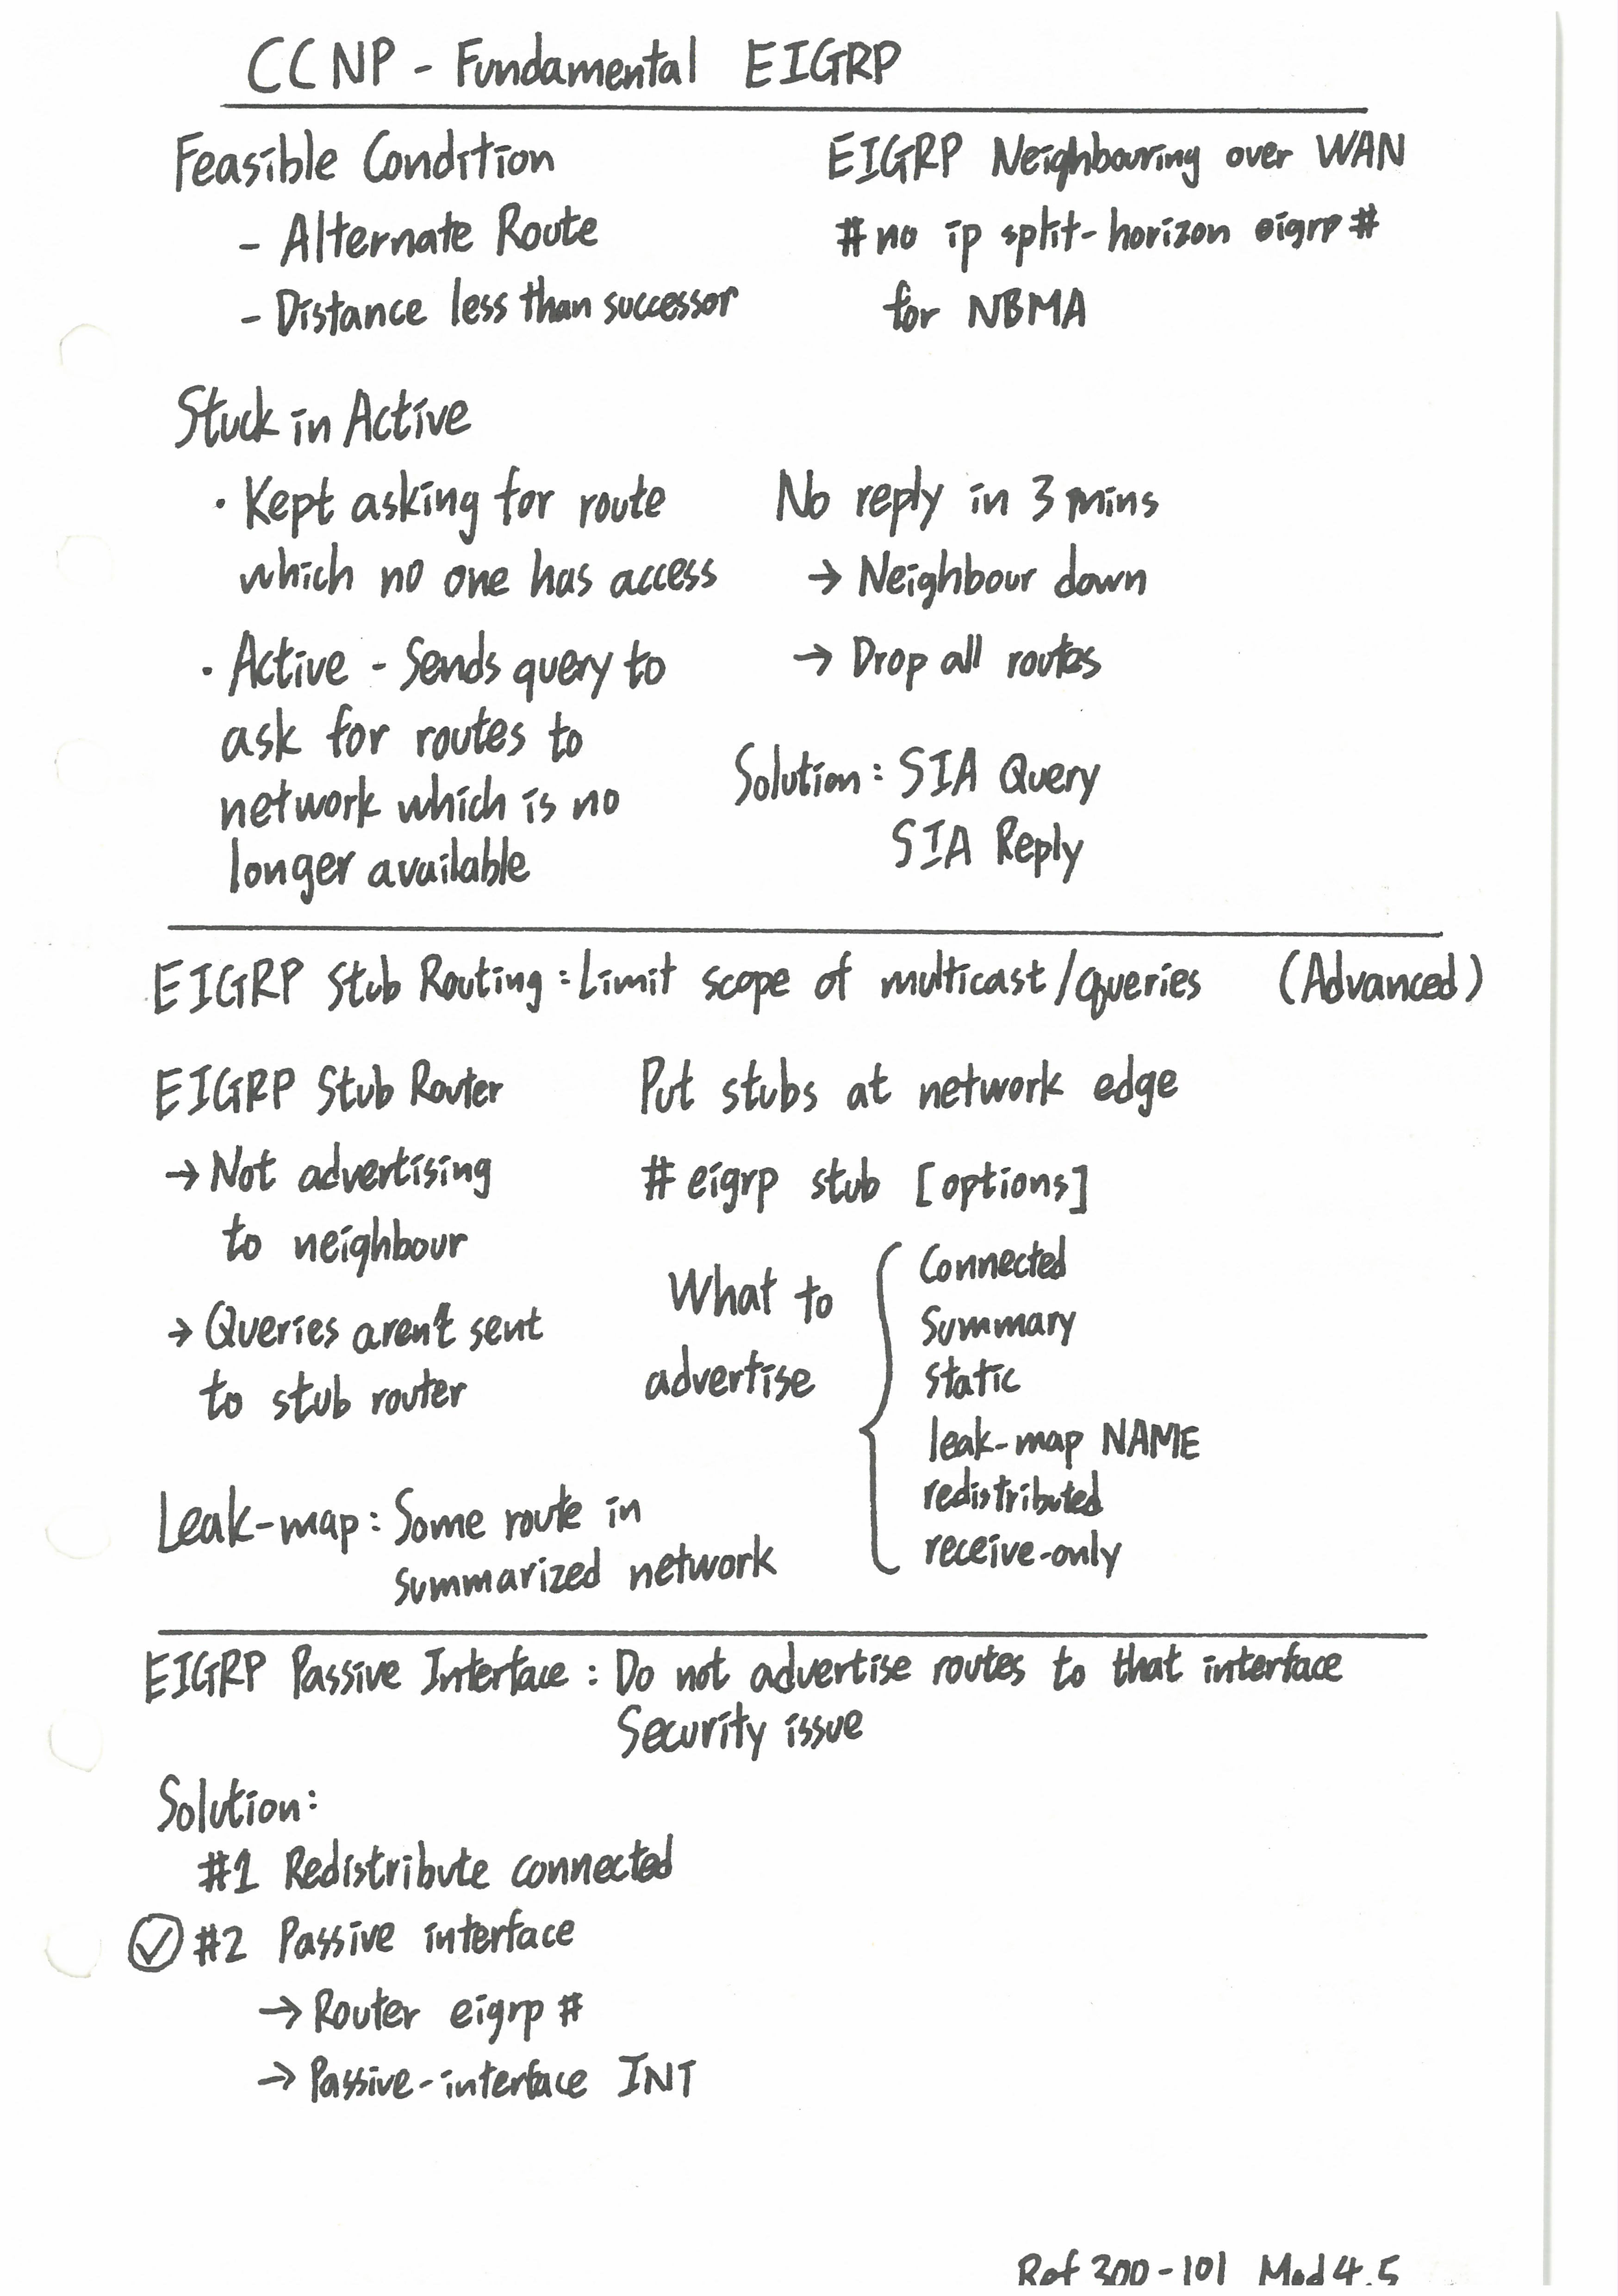 CCNP - Fundamental EIGRP
Feasible Condition
- Alternate Route
- Distance less than successor
EIGRP Neighbouring over WAN
# no ip split-horizon eigrp #
for NBMA
Stuck in Active
· Kept asking for route
which no one has access
· Active - Sends query to
ask for routes to
network which is no
longer available
No reply in 3 mins
→ Neighbour down
→ Drop all routes
Solution: SIA Query
SIA Reply
EIGRP Stub Routing: Limit scope of multicast/queries (Advanced)
EIGRP Stub Router
→ Not advertising
to neighbour
→ Queries aren't sent
to stub router
Put stubs at network edge
# eigrp stub [options]
What to
advertise
Connected
Summary
static
leak-map NAME
redistributed
receive-only
Leak-map: Some route in
summarized network
EIGRP Passive Interface: Do not advertise routes to that interface
Security issue
Solution:
#1 Redistribute connected
✓ #2 Passive interface
→ Router eigrp #
→ Passive-interface INT
Ref 300-101 Mod 4.5